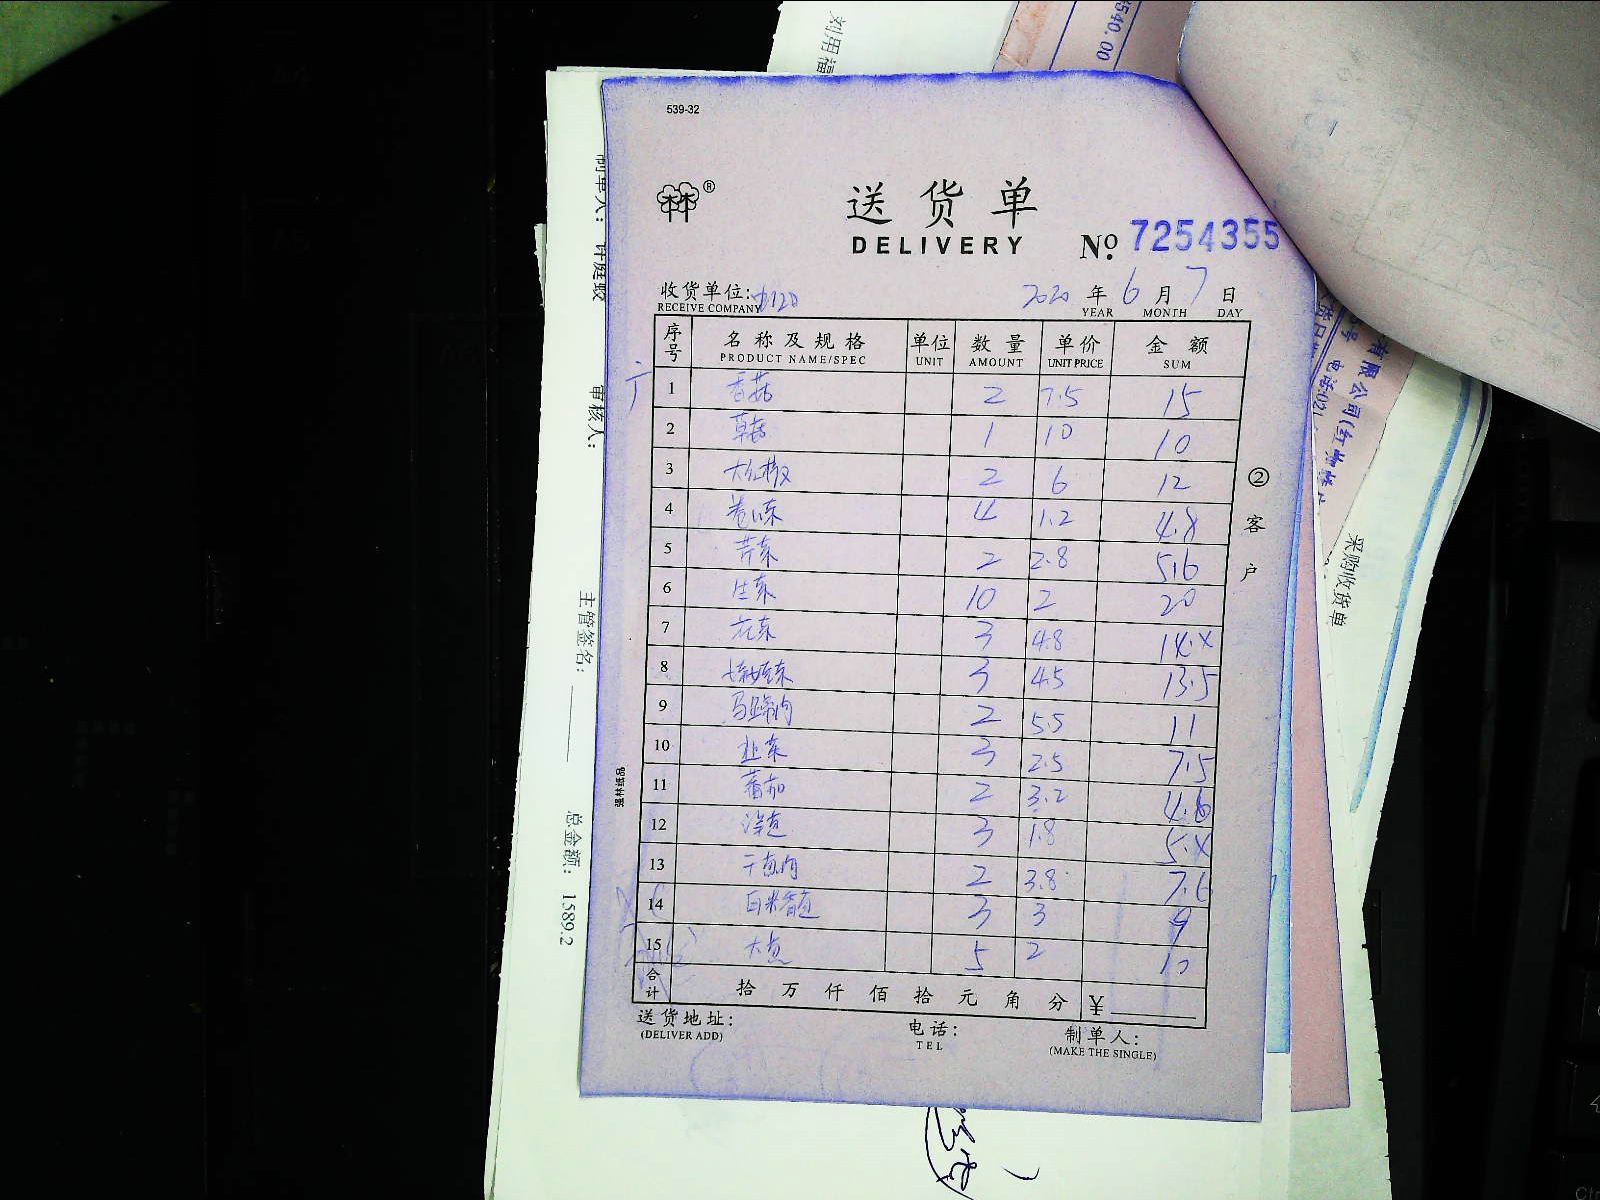 539-32
®
送货单
DELIVERY
Nº. 7254355
收货单位:
RECEIVE COMPANY
2020 年 6 月 7 日
YEAR MONTH DAY
序号 名称及规格 单位 数量 单价 金额
PRODUCT NAME/SPEC UNIT AMOUNT UNIT PRICE SUM
1 香菇 2 7.5 15
2 草菇 1 10 10
3 大红椒 2 6 12
4 卷心菜 4 1.2 4.8
5 芹菜 2 2.8 5.6
6 生菜 10 2 20
7 花菜 3 4.8 14.4
8 3 4.5 13.5
9 马蹄肉 2 5.5 11
10 韭菜 3 2.5 7.5
11 蕃茄 2 3.2
12 3 1.8 5.4
13 2 3.8 7.6
14 白米 3 3 9
15 大 5 2 10
合计 拾 万 仟 佰 拾 元 角 分 ¥
送货地址:
(DELIVER ADD)
电话:
TEL
制单人:
(MAKE THE SINGLE)
②客户
强林纸品
审核人:
主管签名:
总金额: 1589.2
采购收货单
540.00
有限公司